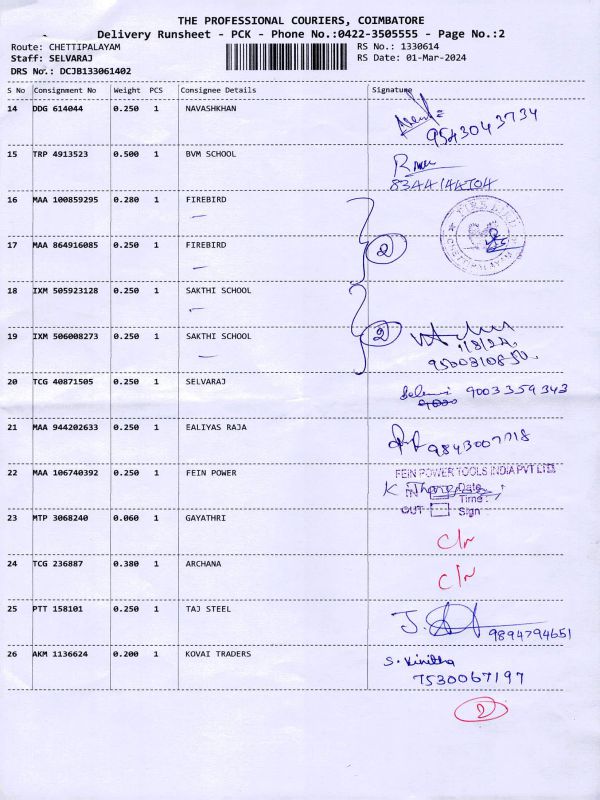 THE PROFESSIONAL COURIERS, COIMBATORE
Delivery Runsheet - PCK - Phone No.:0422-3505555 - Page No.:2
Route: CHETTIPALAYAM RS No.: 1330614
Staff: SELVARAJ RS Date: 01-Mar-2024
DRS No.: DCJB133061402
S No Consignment No Weight PCS Consignee Details Signature
14 DDG 614044 0.250 1 NAVASHKHAN
9543043734
15 TRP 4913523 0.500 1 BVM SCHOOL
16 MAA 100859295 0.280 1 FIREBIRD
17 MAA 864916085 0.250 1 FIREBIRD 2
18 IXM 505923128 0.250 1 SAKTHI SCHOOL
19 IXM 506008273 0.250 1 SAKTHI SCHOOL 2
20 TCG 40871505 0.250 1 SELVARAJ 9003359343
21 MAA 944202633 0.250 1 EALIYAS RAJA
22 MAA 106740392 0.250 1 FEIN POWER FEIN POWER TOOLS INDIA PVT LTD
IN Date
Time:
OUT Sign
23 MTP 3068240 0.060 1 GAYATHRI
24 TCG 236887 0.380 1 ARCHANA
25 PTT 158101 0.250 1 TAJ STEEL
9894794651
26 AKM 1136624 0.200 1 KOVAI TRADERS S. Vinitha
7530067197
2